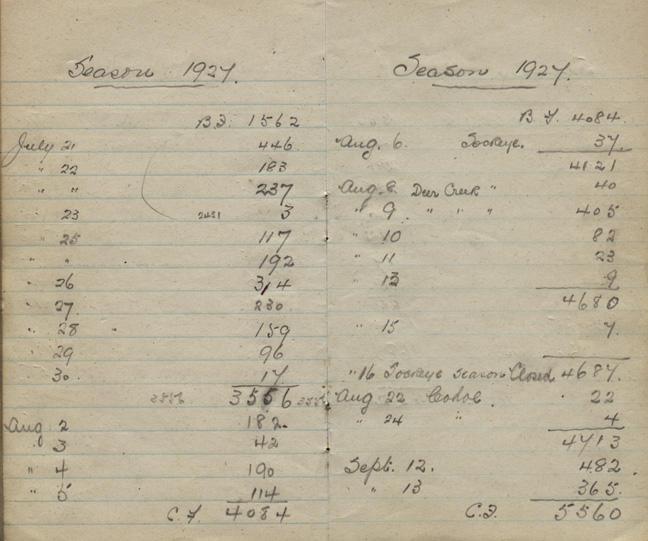 Season 1927.
B.F. 1562
July 21 446
" 22 183
" " 237
" 23 2431 3
" 25 117
" " 192
" 26 314
" 27 230
" 28 " 159
" 29 96
" 30 17
3556 3556
Aug 2 182
" 3 42
" 4 190
" 5 114
C.F. 4084
Season 1927.
B.F. 4084.
Aug. 6 Sockeye. 37
4121
Aug. 8 Deer Creek " 40
" 9 " " " 405
" 10 82
" 11 23
" 13 9
4680
" 15 7.
"16 Sockeye season Closed 4687.
Aug 22 Cohoe. 22
" 24 " 4
4713
Sept. 12. 482.
" 13 365.
C.F. 5560